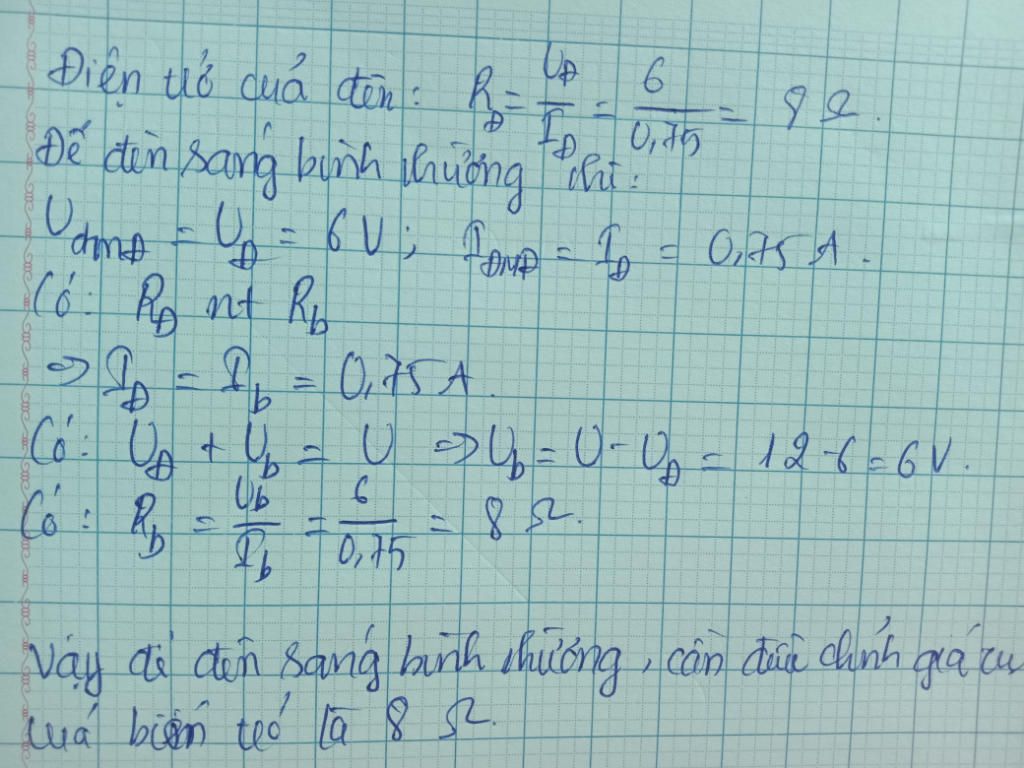 Điện trở của đèn: R_Đ = U_Đ / I_Đ = 6 / 0,75 = 8 Ω.
Để đèn sáng bình thường thì:
U_đmĐ = U_Đ = 6 V; I_ĐMĐ = I_Đ = 0,75 A.
Có: R_Đ nt R_b
=> I_Đ = I_b = 0,75 A.
Có: U_Đ + U_b = U => U_b = U - U_Đ = 12 - 6 = 6 V.
Có: R_b = U_b / I_b = 6 / 0,75 = 8 Ω.
Vậy để đèn sáng bình thường, cần điều chỉnh giá trị
của biến trở là 8 Ω.